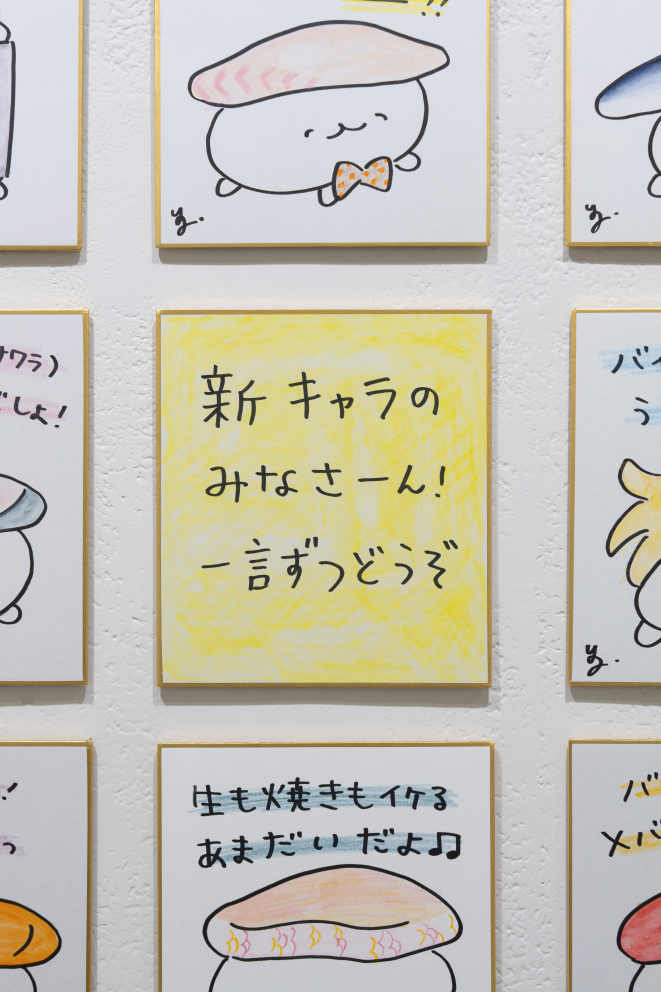 サワラ)
でしょ!
新キャラの
みなさーん!
一言ずつどうぞ
バイ
う
生も焼きもイケる
あまだいだよ♫
バ
メバ